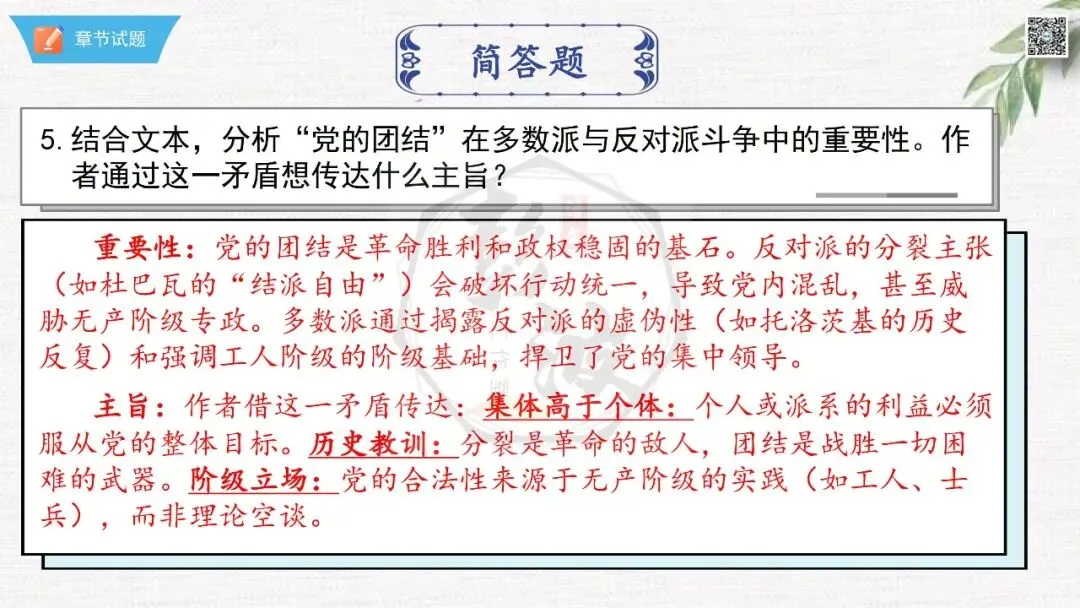 章节试题
简答题
5. 结合文本，分析“党的团结”在多数派与反对派斗争中的重要性。作
者通过这一矛盾想传达什么主旨？
重要性：党的团结是革命胜利和政权稳固的基石。反对派的分裂主张
（如杜巴瓦的“结派自由”）会破坏行动统一，导致党内混乱，甚至威
胁无产阶级专政。多数派通过揭露反对派的虚伪性（如托洛茨基的历史
反复）和强调工人阶级的阶级基础，捍卫了党的集中领导。
主旨：作者借这一矛盾传达：集体高于个体：个人或派系的利益必须
服从党的整体目标。历史教训：分裂是革命的敌人，团结是战胜一切困
难的武器。阶级立场：党的合法性来源于无产阶级的实践（如工人、士
兵），而非理论空谈。